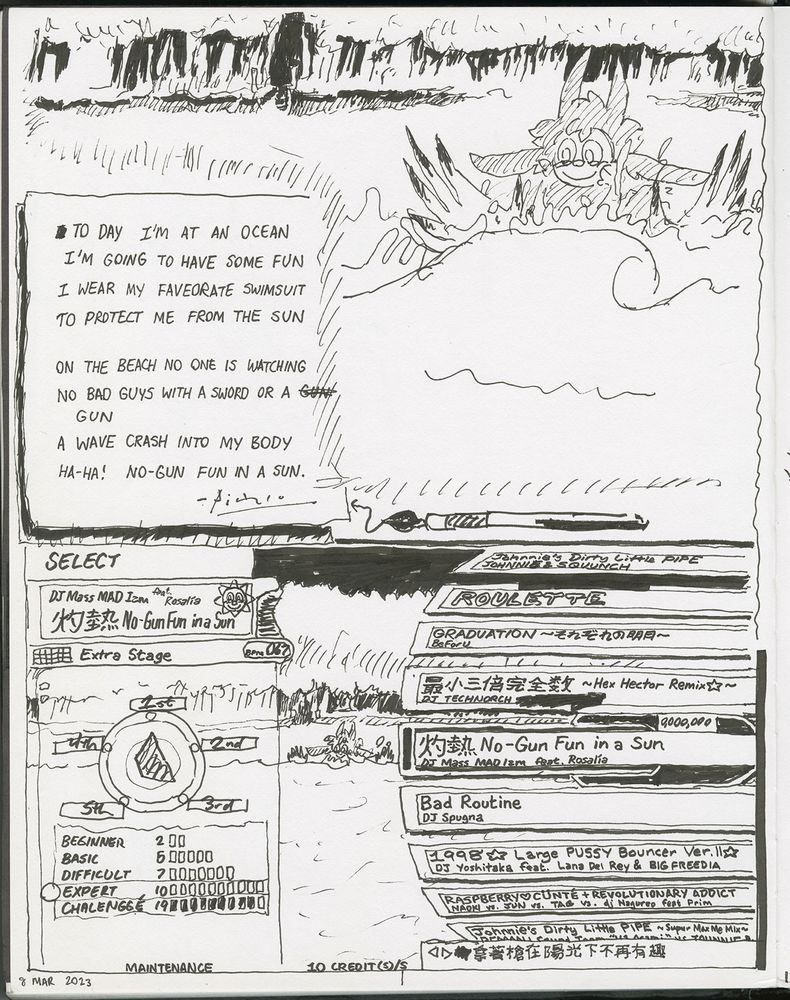 TO DAY I'M AT AN OCEAN
I'M GOING TO HAVE SOME FUN
I WEAR MY FAVEORATE SWIMSUIT
TO PROTECT ME FROM THE SUN
ON THE BEACH NO ONE IS WATCHING
NO BAD GUYS WITH A SWORD OR A GUN
GUN
A WAVE CRASH INTO MY BODY
HA-HA! NO-GUN FUN IN A SUN.
SELECT
DJ Mass MAD Izm feat. Rosalía
灼熱 No-Gun Fun in a Sun
Extra Stage
BPM 067
1st
2nd
3rd
4th
5th
BEGINNER 2
BASIC 5
DIFFICULT 7
EXPERT 10
CHALENGGE 19
Johnnie's Dirty Little PIPE
JOHNNIE & SQUUNCH
ROULETTE
GRADUATION ~それぞれの明日~
BeForU
最小三倍完全数 ~Hex Hector Remix☆~
DJ TECHNORCH
9,000,000
灼熱 No-Gun Fun in a Sun
DJ Mass MAD Izm feat. Rosalía
Bad Routine
DJ Spugna
1998☆ Large PUSSY Bouncer Ver.II☆
DJ Yoshitaka feat. Lana Del Rey & BIG FREEDIA
RASPBERRY♡CUNTE + REVOLUTIONARY ADDICT
NAOKI vs. JUN vs. TAG vs. dj Nagureo feat Prim
Johnnie's Dirty Little PIPE ~Super Max Me Mix~
拿著槍在陽光下不再有趣
MAINTENANCE
10 CREDIT(S)/5
8 MAR 2023